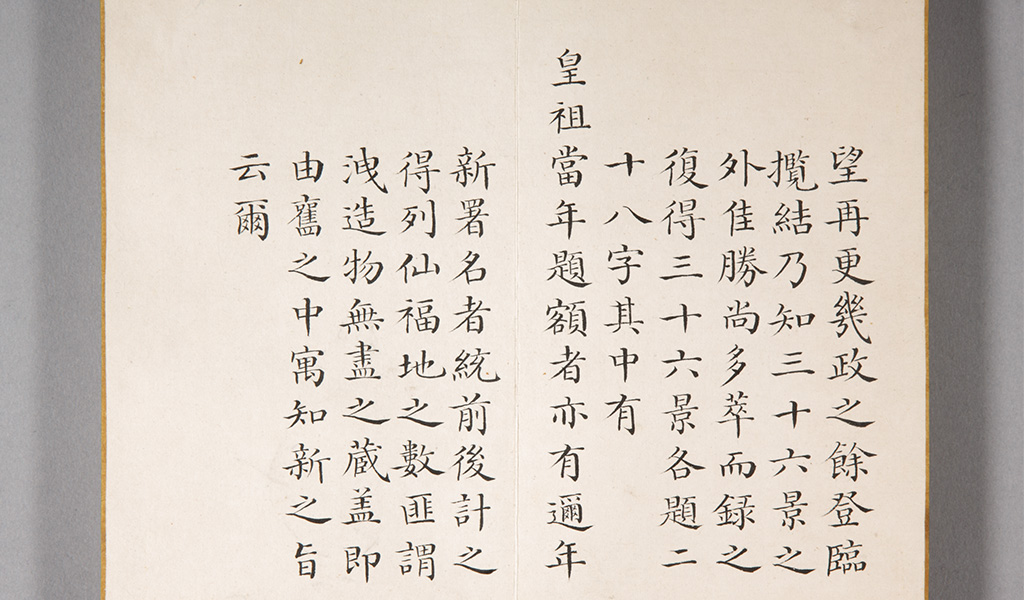 望再更幾政之餘登臨
攬結乃知三十六景之
外佳勝尚多萃而録之
復得三十六景各題二
十八字其中有
皇祖當年題額者亦有邇年
新署名者統前後計之
得列仙福地之數匪謂
洩造物無盡之蔵盖即
由舊之中寓知新之旨
云爾